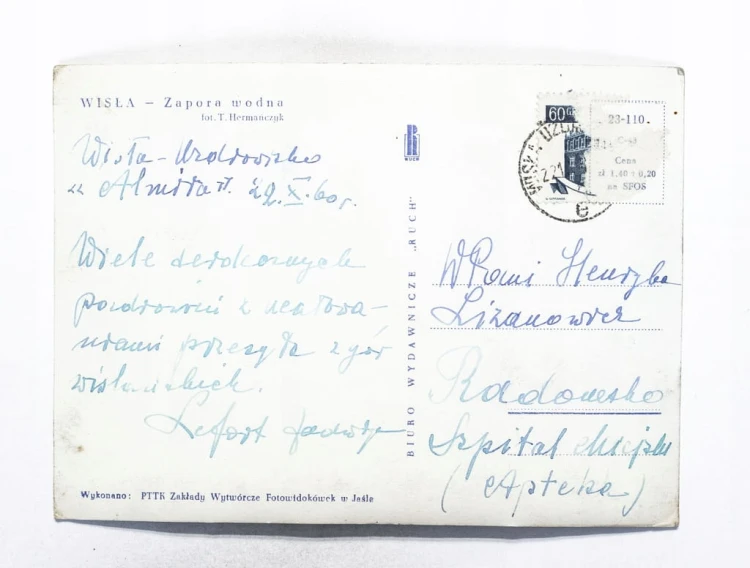 WISŁA – Zapora wodna
fot. T. Hermańczyk
Wisła-Uzdrowisko
„Almira” 22.X.60r.
Wiele serdecznych
pozdrowień z
przesyła z gór
wiślańskich.
Lefort Jadwiga
Wykonano: PTTK Zakłady Wytwórcze Fotowidokówek w Jaśle
RUCH
BIURO WYDAWNICZE „RUCH”
60 Gr
23-110.
Cena
zł 1,40 + 0,20
na SFOS
e
WPani Henryka
Lizanowicz
Radomsko
Szpital Miejski
(Apteka)